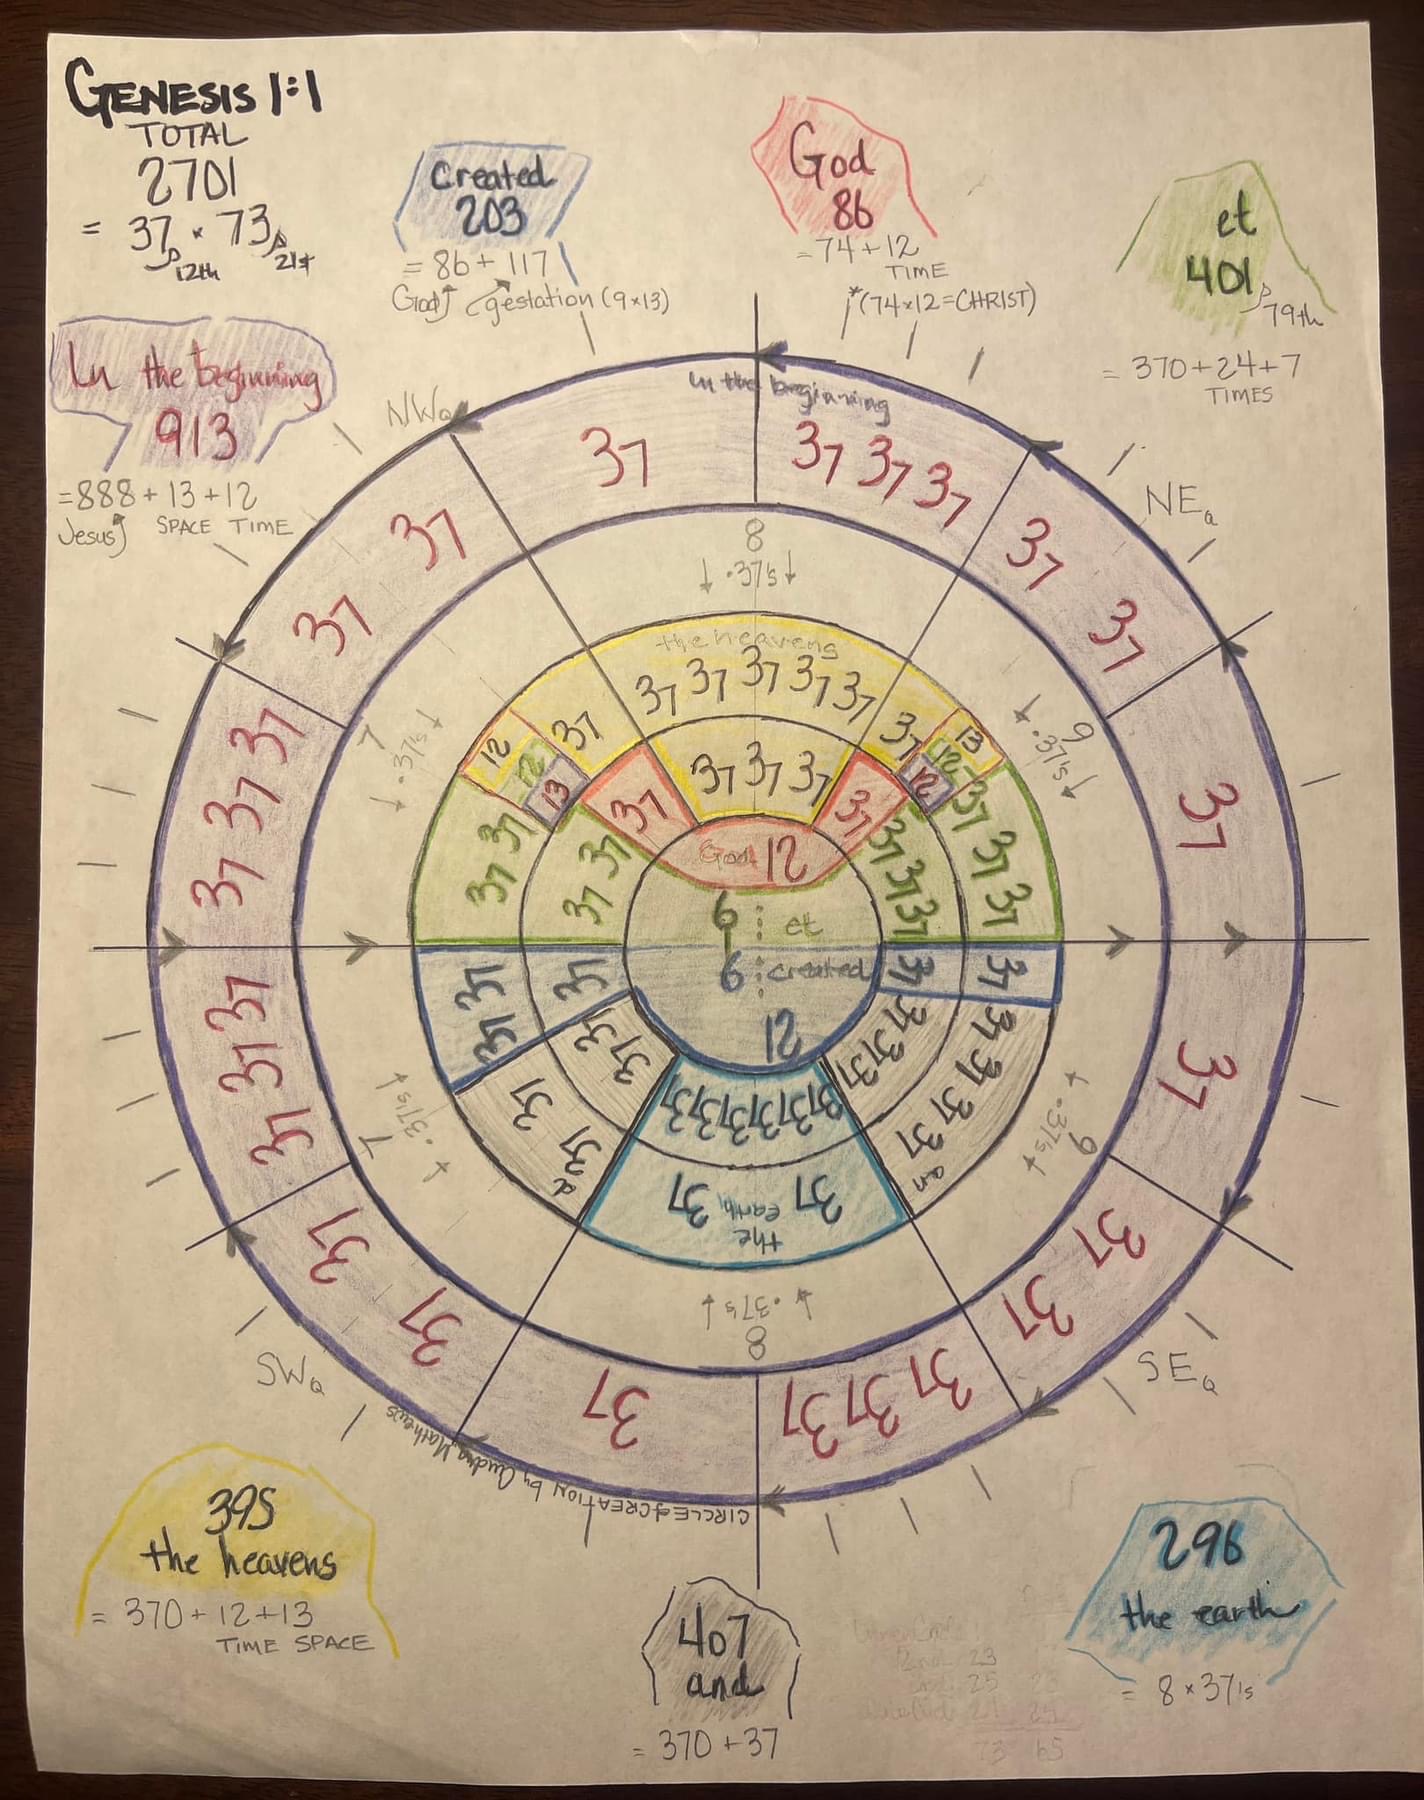 GENESIS 1:1
TOTAL
2701
= 37 × 73
12th 21st
Created
203
= 86 + 117
God gestation (9×13)
God
86
= 74 + 12
TIME
*(74×12=CHRIST)
et
401
79th
= 370 + 24 + 7
TIMES
In the beginning
913
= 888 + 13 + 12
Jesus SPACE TIME
NWQ
NEQ
In the beginning
37 37 37 37
37 37
37 37
8
↓ .37's ↓
the heavens
37 37 37 37 37
37 37
7
↓ .37's ↓
9
↓ .37's ↓
12 12 13
13 12 12
37 37 37
37 37
God 12
37 37 37
37 37 37
37
37 37
37 37
37 37 37
37 37 37
6 et
6 created
12
37 37 37
37 37
37 37
37 37
37 37 37
37 37 37 37
an
d
37 37 37 37 37 37
37 37
the earth
7
↓ .37's ↓
9
↓ .37's ↓
8
↓ .37's ↓
37 37 37
37 37
37
37 37
37 37 37
37
CIRCLE of CREATION by Audra Mathews
SWQ
SEQ
395
the heavens
= 370 + 12 + 13
TIME SPACE
407
and
= 370 + 37
296
the earth
= 8 × 37's
23
25
73 65